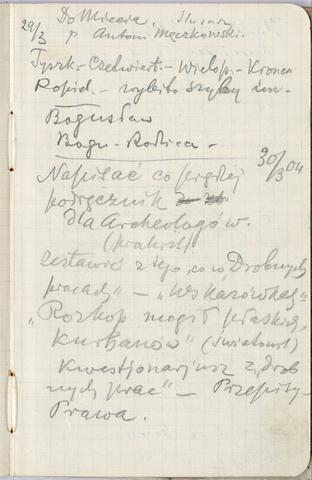 29/3 Do Miecia, Stucar
p Antoni Męczkowski.
Tyszk.- Czetwiert.- Wielop.- Kronen
Ropid.- wybito szyby im-
Bogusław
Bogu-Rodica-
30/3 04
Napisać co prędzej
podręcznik
dla Archeologów.
(prakt)
Zestawić z tego, co w „Drobnych
pracach" - „Wskazówkach"
„Rozkop. mogił płaskich,
Kurhanów" (Światowit)
Kwestjonarjusz z „drob
nych prac" - Przepisy-
Prawa.